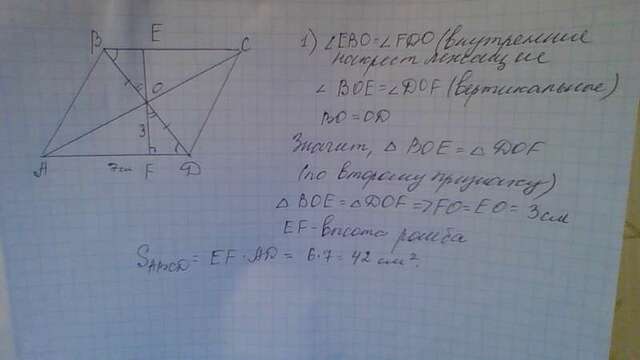 B E C
O
3
A 7см F D
1) ∠EBO = ∠FDO (внутренние
накрест лежащие
∠ BOE = ∠DOF (вертикальные)
BO = OD
Значит, △ BOE = △ DOF
(по второму признаку)
△ BOE = △ DOF => FO = EO = 3 см
EF - высота ромба
SABCD = EF · AD = 6 · 7 = 42 см².